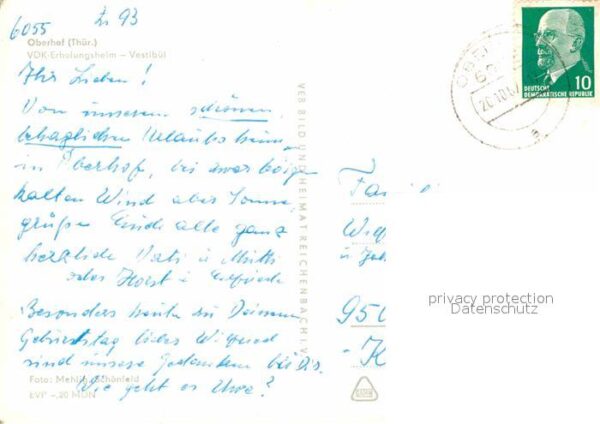 6055 Zi 93
Oberhof (Thür.)
VDK-Erholungsheim – Vestibül
Ihr Lieben!
Von unserem schönen,
behaglichen Urlaubsheim,
in Oberhof, bei zwar böigen
kalten Wind aber Sonne,
grüßen Euch alle ganz
herzlich Vati u Mutti
oder Horst u
Besonders heute zu Deinem
Geburtstag lieber Wilfried
sind unsere Gedanken bei Dir.
Foto: Mehlig, Schönfeld
Wie geht es Uwe?
EVP –,20 MDN
VEB BILD UND HEIMAT REICHENBACH I. V.
DEUTSCHE
DEMOKRATISCHE REPUBLIK
10
20.10
a
Fa
u
950
privacy protection
Datenschutz